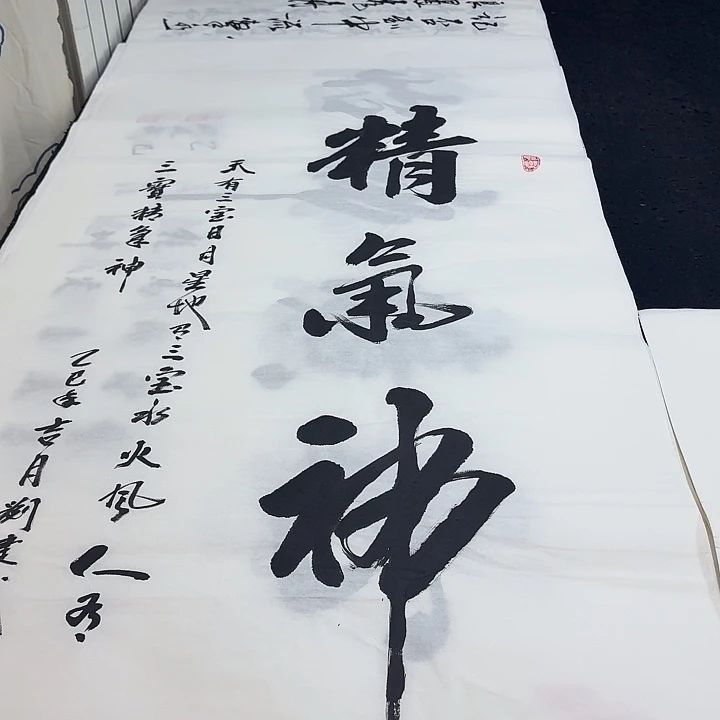 精氣神
天有三宝日月星地有三宝水火风人有
三寳精氣神
乙巳年吉月刘建